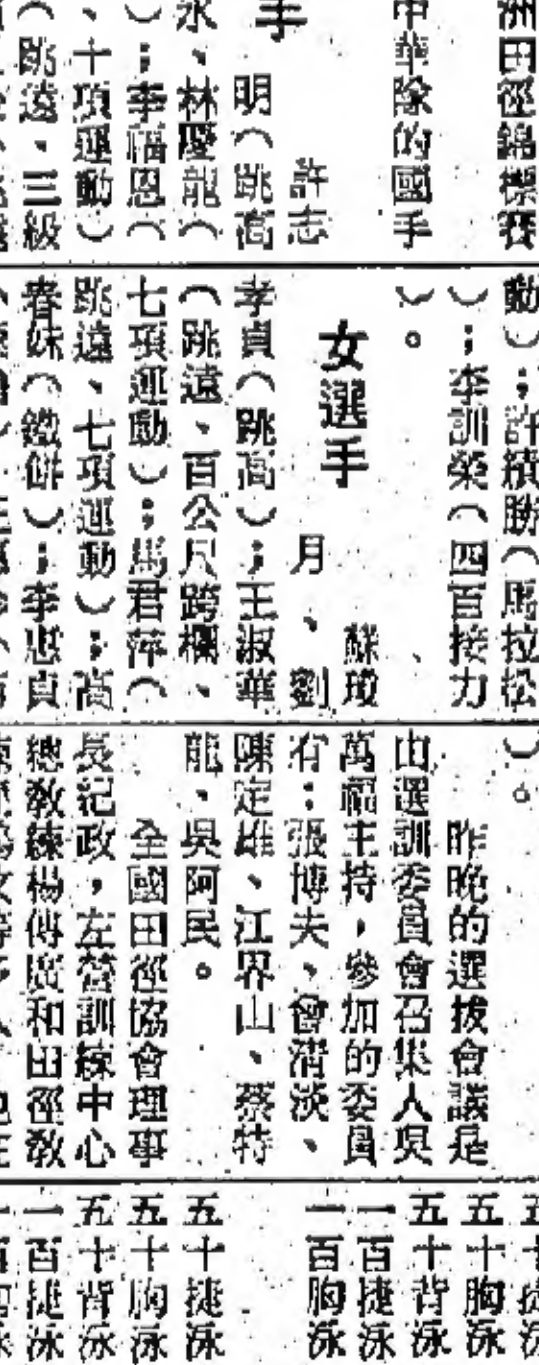 洲田徑錦標賽
中華隊的國手
手
許志
明（跳高
永、林慶龍（
）；李福恩（
、十項運動）
（跳遠、三級
動）；許績勝（馬拉松
）；李訓榮（四百接力
）。
女選手
蘇玫
月、劉
孝貞（跳高）；王淑華
（跳遠、百公尺跨欄、
七項運動）；馬君萍（
跳遠、七項運動）；高
春妹（鐵餅）；李惠貞
）。
昨晚的選拔會議是
由選訓委員會召集人吳
萬福主持，參加的委員
有：張博夫、曾清淡、
陳定雄、江界山、蔡特
龍、吳阿民。
全國田徑協會理事
長紀政，左營訓練中心
總教練楊傳廣和田徑教
五十捷泳
五十胸泳
五十背泳
一百捷泳
一百胸泳
五十捷泳
五十胸泳
五十背泳
一百捷泳